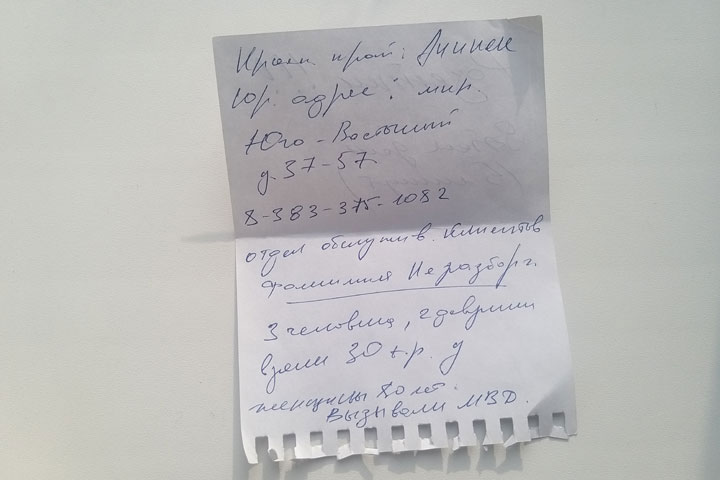 Красн. край: Ачинск
Юр. адрес: мкр.
Юго-Восточный
д. 37-57
8-383-375-1082
отдел обслужив. клиентов
фамилия Не разборч.
3 человека, 2 девушки
взяли 30 т.р. у
женщины 80 лет.
Вызывали МВД.